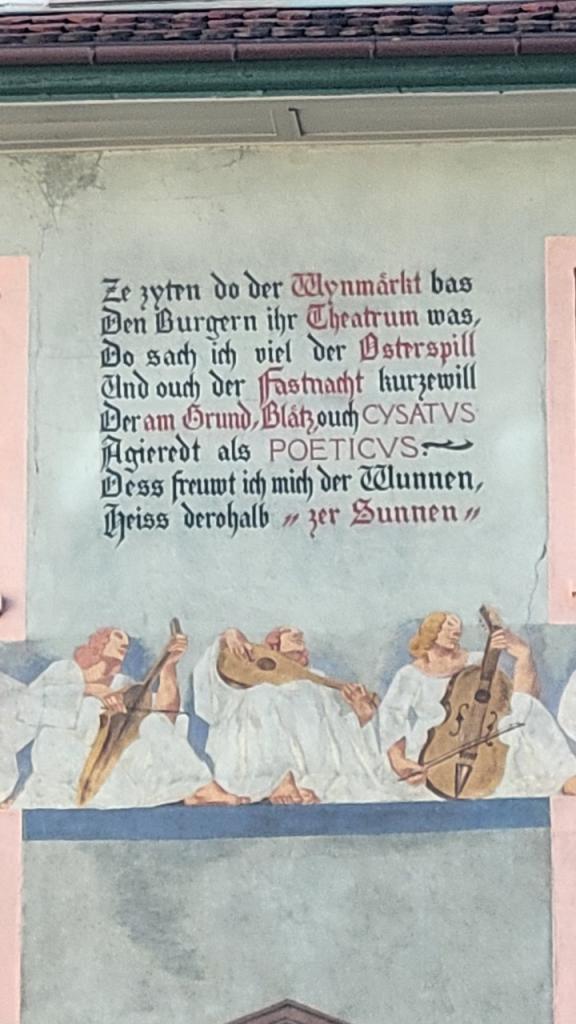 Ze zyten do der Wynmärkt bas
Den Burgern ihr Theatrum was,
Do sach ich viel der Osterspill
Und ouch der Fastnacht kurzewill
Der am Grund, Blätz, ouch CYSATVS
Agieredt als POETICVS.
Dess freuwt ich mich der Wunnen,
Heiss derohalb „ zer Sunnen „